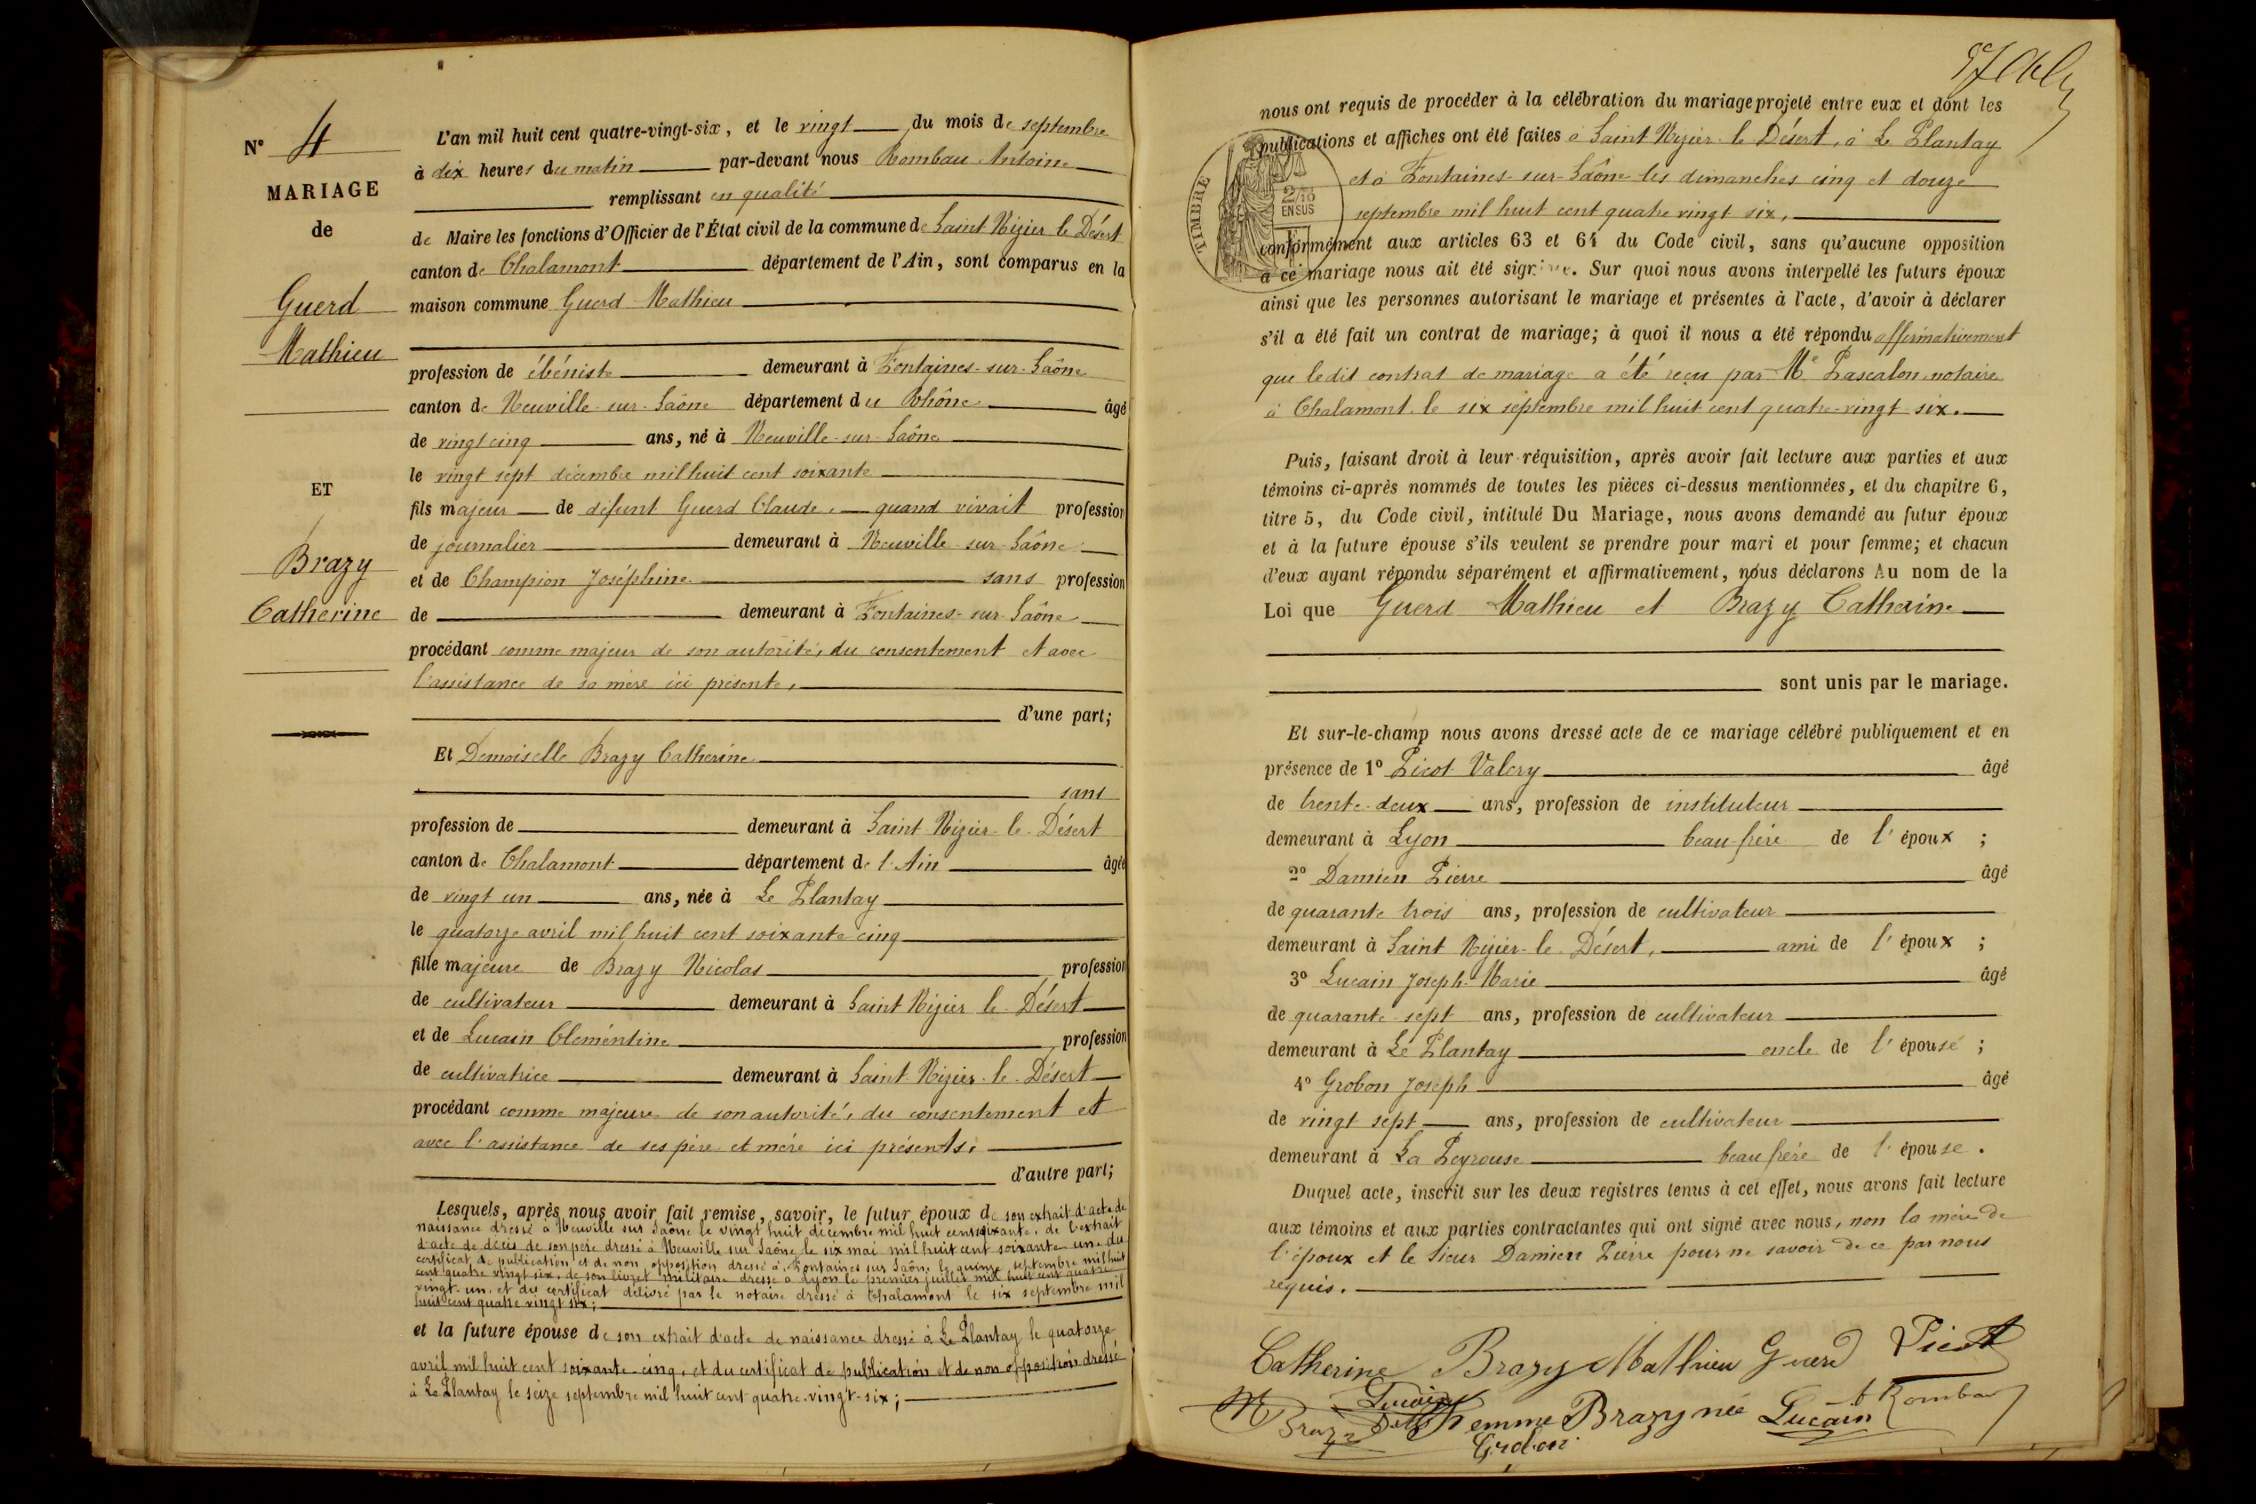 N° 4
MARIAGE
de
Guerd
Mathieu
ET
Brazy
Catherine
L'an mil huit cent quatre-vingt-six, et le vingt du mois de septembre
à dix heures du matin par-devant nous Rombau Antoine
remplissant en qualité
de Maire les fonctions d'Officier de l'État civil de la commune de Saint Nizier le Désert
canton de Chalamont département de l'Ain, sont comparus en la
maison commune Guerd Mathieu
profession de ébéniste demeurant à Fontaines-sur-Saône
canton de Neuville-sur-Saône département du Rhône âgé
de vingt cinq ans, né à Neuville-sur-Saône
le vingt sept décembre mil huit cent soixante
fils majeur de défunt Guerd Claude, quand vivait profession
de journalier demeurant à Neuville-sur-Saône
et de Champion Joséphine sans profession
de demeurant à Fontaines-sur-Saône
procédant comme majeur de son autorité, du consentement et avec
l'assistance de sa mère ici présente,
d'une part;
Et Demoiselle Brazy Catherine
sans
profession de demeurant à Saint Nizier-le-Désert
canton de Chalamont département de l'Ain âgée
de vingt un ans, née à Le Plantay
le quatorze avril mil huit cent soixante cinq
fille majeure de Brazy Nicolas profession
de cultivateur demeurant à Saint Nizier le Désert
et de Lucain Clémentine profession
de cultivatrice demeurant à Saint Nizier-le-Désert
procédant comme majeure de son autorité, du consentement et
avec l'assistance de ses père et mère ici présents,
d'autre part;
Lesquels, après nous avoir fait remise, savoir, le futur époux de son extrait d'acte de
naissance dressé à Neuville sur Saône le vingt huit décembre mil huit cent soixante, de l'extrait
d'acte de décès de son père dressé à Neuville sur Saône le six mai mil huit cent soixante un, du
certificat de publication et de non opposition dressé à Fontaines sur Saône le quinze septembre mil huit
cent quatre vingt six, de son livret militaire dressé à Lyon le premier juillet mil huit cent quatre
vingt-un et du certificat délivré par le notaire dressé à Chalamont le six septembre mil
huit cent quatre vingt six;
et la future épouse de son extrait d'acte de naissance dressé à Le Plantay le quatorze
avril mil huit cent soixante-cinq, et du certificat de publication et de non opposition dressé
à Le Plantay le seize septembre mil huit cent quatre-vingt-six;
nous ont requis de procéder à la célébration du mariage projeté entre eux et dont les
publications et affiches ont été faites à Saint Nizier-le Désert, à Le Plantay
et à Fontaines-sur-Saône les dimanches cinq et douze
septembre mil huit cent quatre vingt six,
TIMBRE
2/10
EN SUS
conformément aux articles 63 et 64 du Code civil, sans qu'aucune opposition
à ce mariage nous ait été signifiée. Sur quoi nous avons interpellé les futurs époux
ainsi que les personnes autorisant le mariage et présentes à l'acte, d'avoir à déclarer
s'il a été fait un contrat de mariage; à quoi il nous a été répondu affirmativement
que ledit contrat de mariage a été reçu par Me Pascalon notaire
à Chalamont le six septembre mil huit cent quatre-vingt six.
Puis, faisant droit à leur réquisition, après avoir fait lecture aux parties et aux
témoins ci-après nommés de toutes les pièces ci-dessus mentionnées, et du chapitre 6,
titre 5, du Code civil, intitulé Du Mariage, nous avons demandé au futur époux
et à la future épouse s'ils veulent se prendre pour mari et pour femme; et chacun
d'eux ayant répondu séparément et affirmativement, nous déclarons Au nom de la
Loi que Guerd Mathieu et Brazy Catherine
sont unis par le mariage.
Et sur-le-champ nous avons dressé acte de ce mariage célébré publiquement et en
présence de 1° Picot Valery âgé
de trente-deux ans, profession de instituteur
demeurant à Lyon beau-frère de l'époux ;
2° Damien Pierre âgé
de quarante trois ans, profession de cultivateur
demeurant à Saint Nizier-le-Désert, ami de l'époux ;
3° Lucain Joseph-Marie âgé
de quarante-sept ans, profession de cultivateur
demeurant à Le Plantay oncle de l'épouse ;
4° Grobon Joseph âgé
de vingt sept ans, profession de cultivateur
demeurant à La Peyrouse beau frère de l'épouse.
Duquel acte, inscrit sur les deux registres tenus à cet effet, nous avons fait lecture
aux témoins et aux parties contractantes qui ont signé avec nous, non la mère de
l'époux et le sieur Damien Pierre pour ne savoir de ce par nous
requis.
Catherine Brazy Mathieu Guerd Picot
Lucain
Brazy Femme Brazy née Lucain A Rombau
Grobon